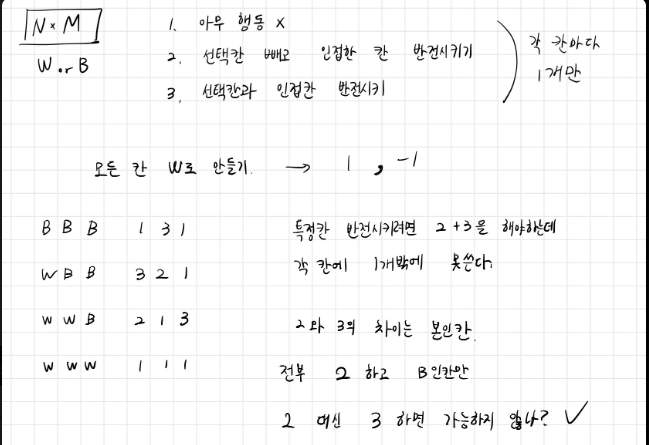 N × M
W or B
1. 아무 행동 X
2. 선택칸 빼고 인접한 칸 반전시키기
3. 선택칸과 인접칸 반전시키
각 칸마다
1개만
모든 칸 W로 만들기. → 1, -1
B B B 1 3 1
W B B 3 2 1
W W B 2 1 3
W W W 1 1 1
특정칸 반전시키려면 2+3을 해야하는데
각 칸에 1개밖에 못쓴다.
2와 3의 차이는 본인칸.
전부 2 하고 B인칸만
2 대신 3 하면 가능하지 않나? ✓